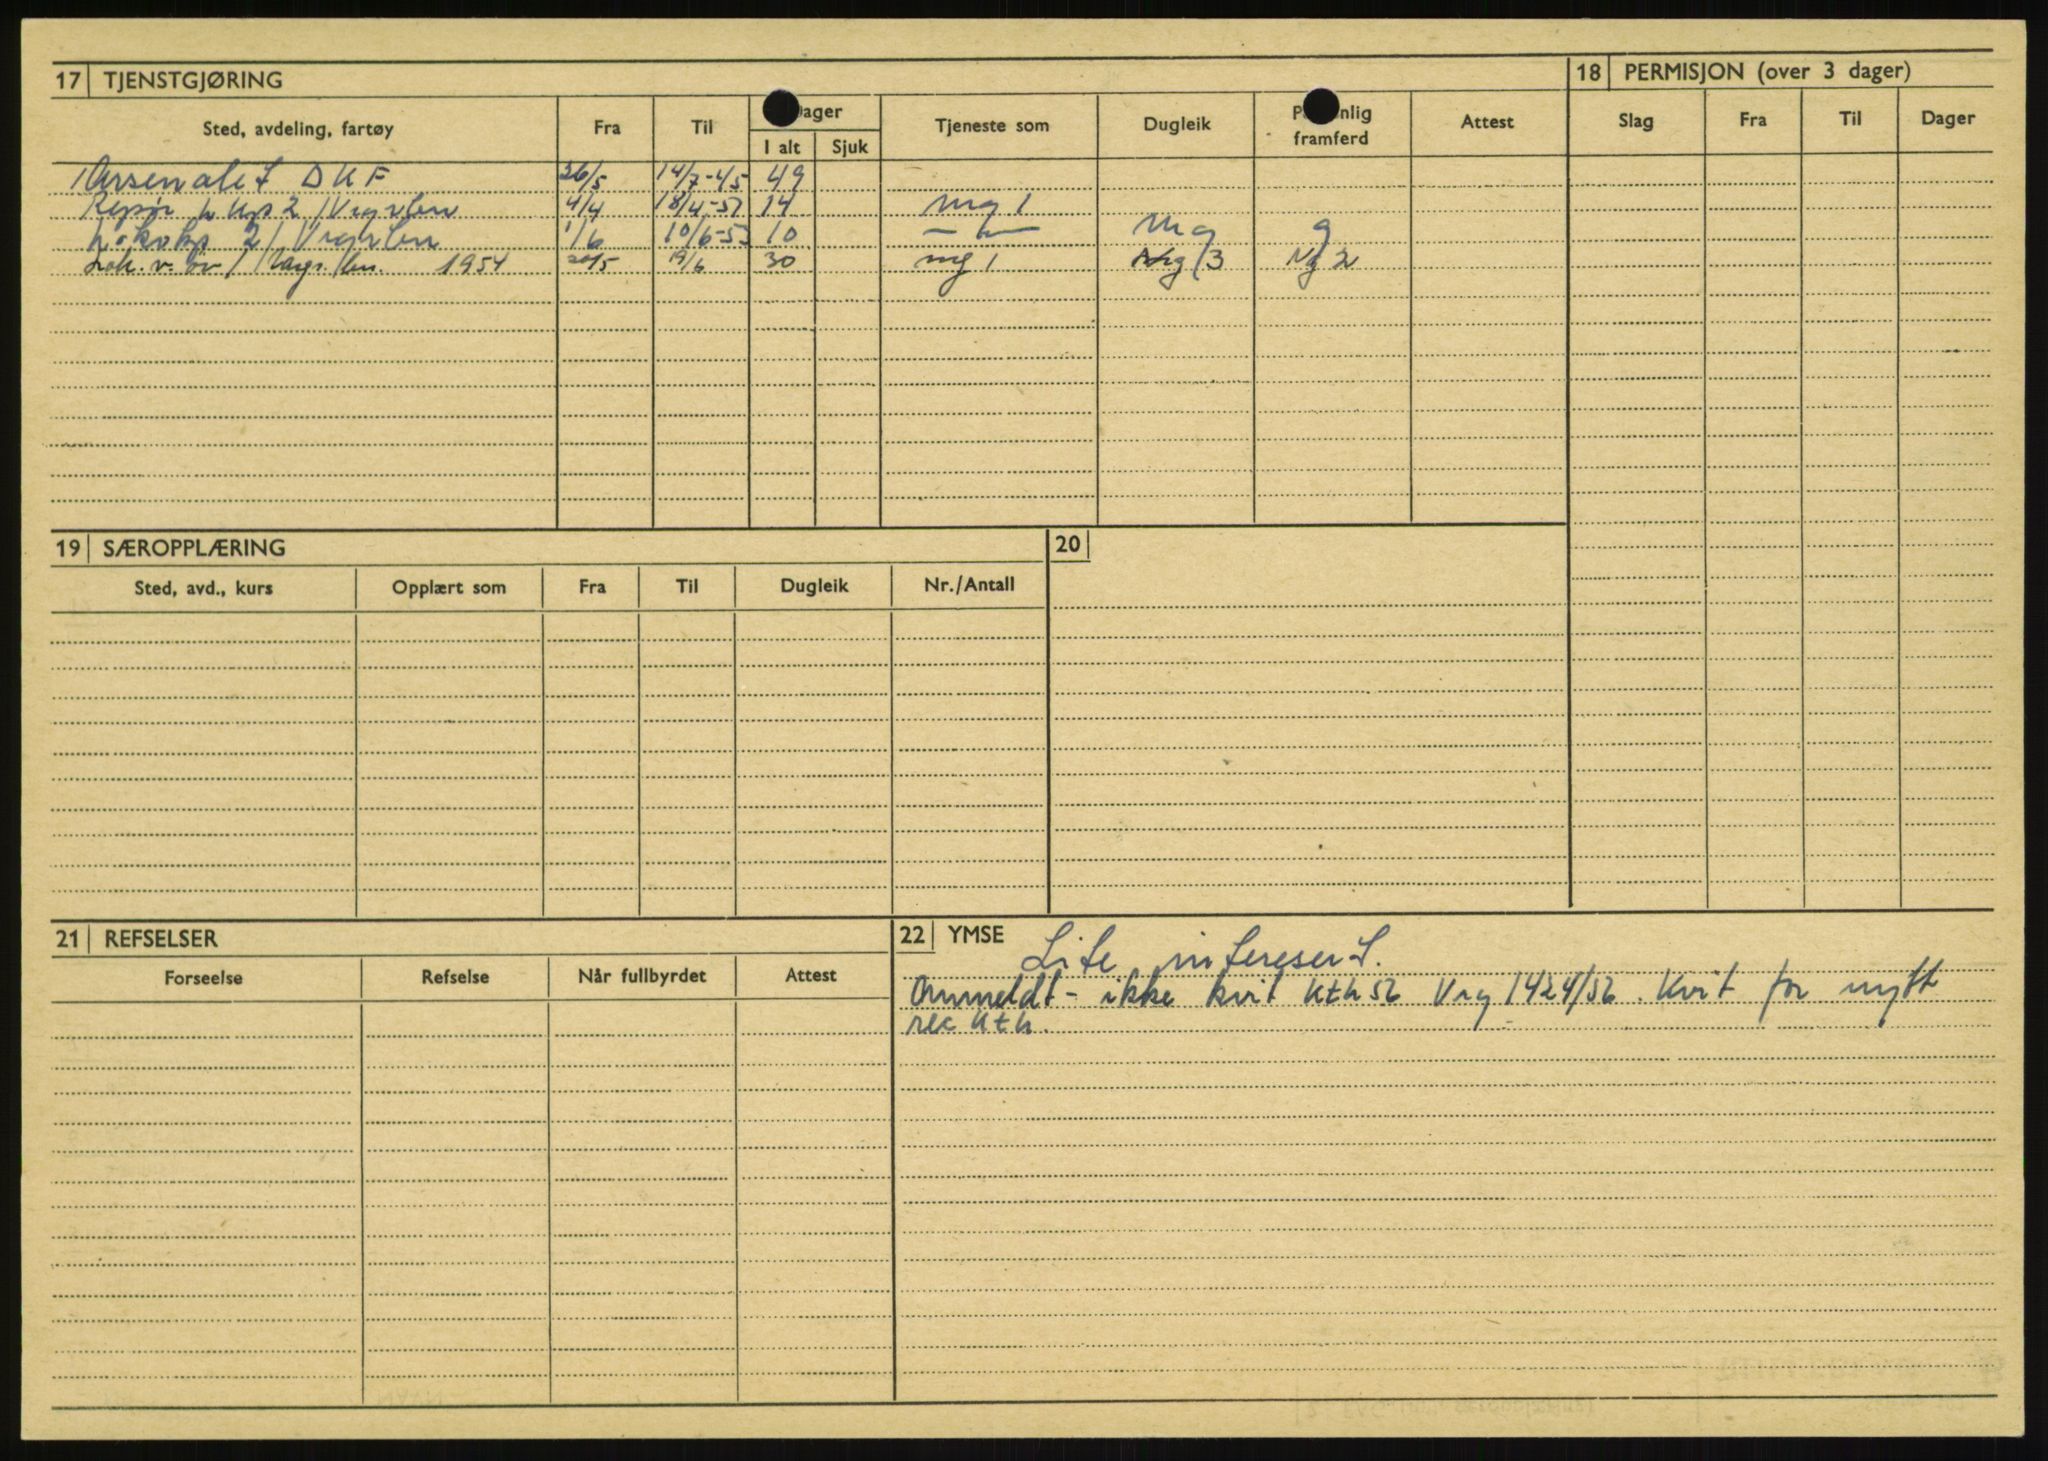 17 TJENSTGJØRING
18 PERMISJON (over 3 dager)
Sted, avdeling, fartøy Fra Til Dager Tjeneste som Dugleik framferd Attest
I alt Sjuk
Slag Fra Til Dager
Arsenalet DKF 26/5 14/7-45 49
4/4 18/4-52 14 mg 1
2/ 1/6 10/6-53 10 — " — Mg g
1954 20/5 19/6 30 mg 1 3 Ng 2
19 SÆROPPLÆRING
20
Sted, avd., kurs Opplært som Fra Til Dugleik Nr./Antall
21 REFSELSER
Forseelse Refselse Når fullbyrdet Attest
22 YMSE
Lite interesert.
Ommeldt - ikke kvit Kth 56 Vrg 1424/56. Kvit for nytt
rec Kth.